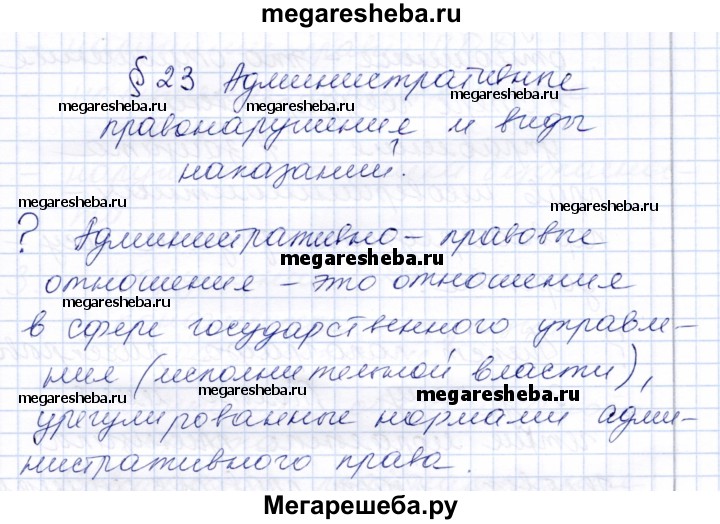 megaresheba.ru
§ 23 Административные
megaresheba.ru megaresheba.ru
правонарушения и виды
megaresheba.ru megaresheba.ru
наказаний.
megaresheba.ru megaresheba.ru
? Административно – правовые
megaresheba.ru
отношения – это отношения
в сфере государственного управле-
megaresheba.ru megaresheba.ru
ния (исполнительной власти),
megaresheba.ru megaresheba.ru
урегулированные нормами адми-
нистративного права.
megaresheba.ru megaresheba.ru
Мегарешеба.ру